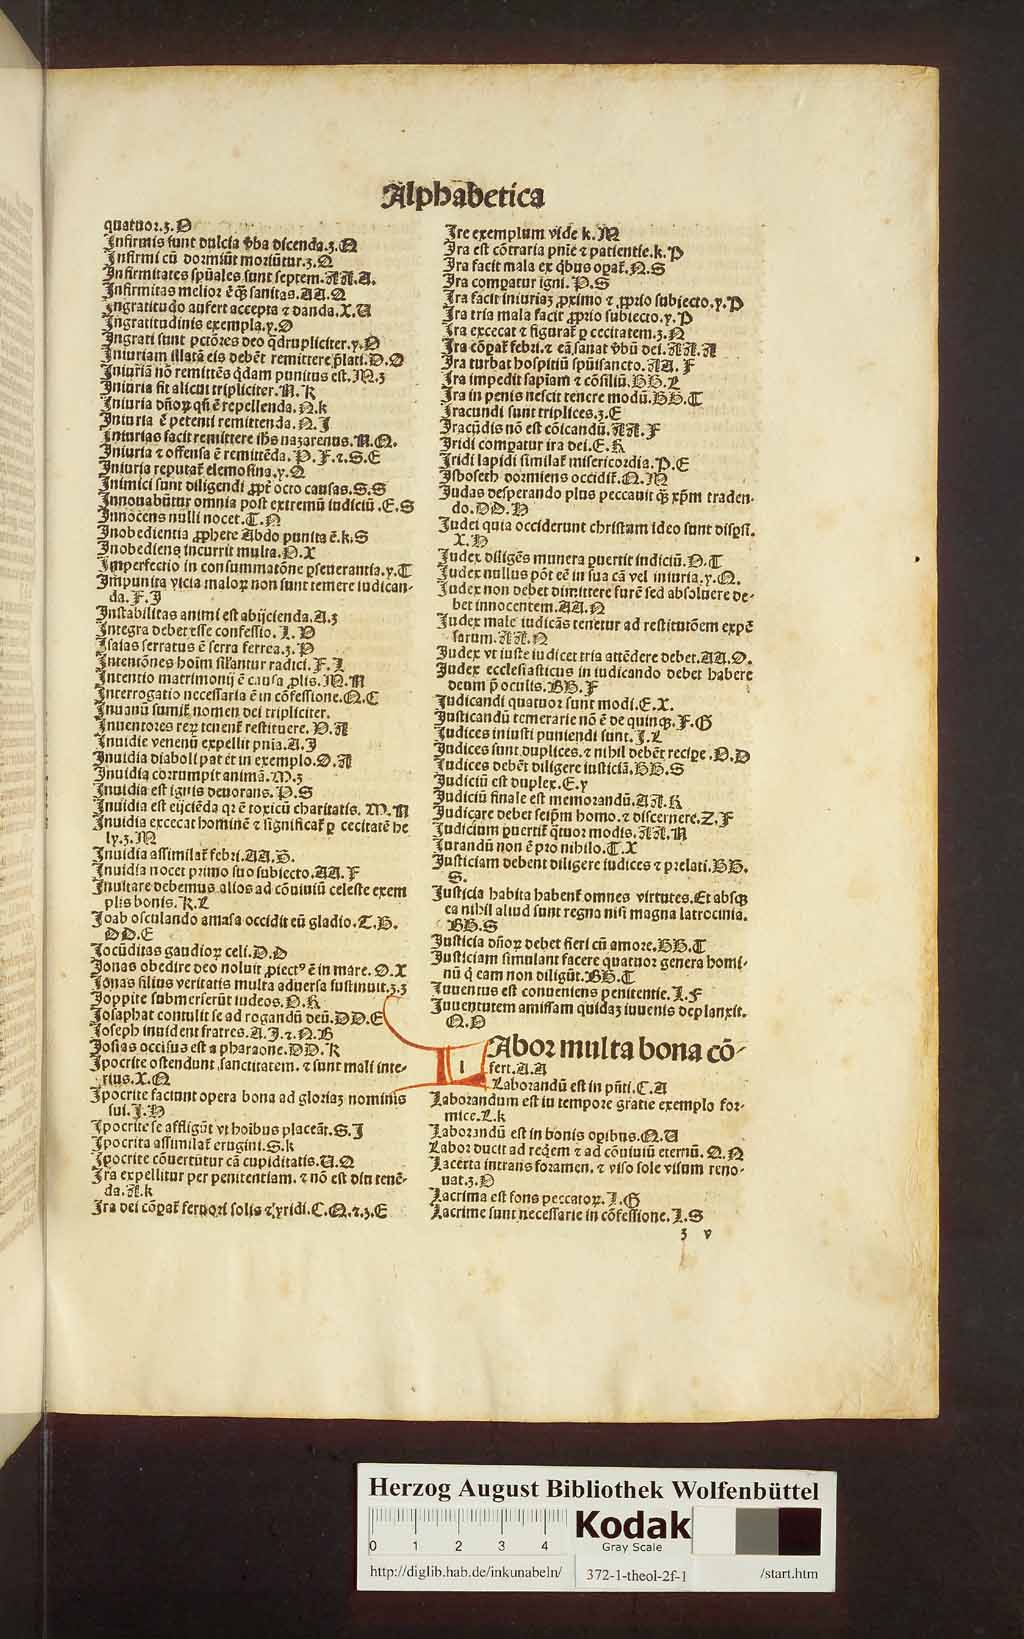 Alphabetica
quatuor.3.D
Infirmis sunt dulcia v̄ba dicenda.3.Q
Infirmi cū dormiūt moriūtur.3.Q
Infirmitates spūales sunt septem.AA.A.
Infirmitas melior ē q̄ʒ sanitas.AA.Q
Ingratitudo aufert accepta ⁊ danda.X.U
Ingratitudinis exempla.y.O
Ingrati sunt pctōres deo q̄drupliciter.y.D
Iniuriam illatā eis debēt remittere p̄lati.D.O
Iniuriā nō remittēs q̄dam punitus est.M.3
Iniuria fit alicui tripliciter.N.K
Iniuria dn̄oꝝ q̄si ē repellenda.N.k
Iniuria ē petenti remittenda.N.I
Iniurias facit remittere ihs nazarenus.N.Q.
Iniuria ⁊ offensa ē remittēda.P.F.⁊.S.E
Iniuria reputat̄ elemosina.y.Q
Inimici sunt diligendi ꝓpt̄ octo causas.S.S
Innouabūtur omnia post extremū iudiciū.E.S
Innocens nulli nocet.T.N
Inobedientia ꝓphete Abdo punita ē.k.S
Inobediens incurrit multa.D.X
Imperfectio in consummatōne ꝑseuerantia.y.T
Impunita vicia maloꝝ non sunt temere iudican-
da.F.I
Instabilitas animi est abijcienda.A.3
Integra debet esse confessio.I.D
Isaias serratus ē serra ferrea.3.P
Intentōnes hoīm sil̄antur radici.F.I
Intentio matrimonij ē causa ꝓlis.M.N
Interrogatio necessaria ē in cōfessione.Q.C
Inuanū sumit̄ nomen dei tripliciter.
Inuentores reꝝ tenent̄ restituere.D.A
Inuidie venenū expellit pn̄ia.A.I
Inuidia diaboli patet in exemplo.O.A
Inuidia corrumpit animā.M.3
Inuidia est ignis deuorans.P.S
Inuidia est eijciēda qr ē toxicū charitatis. M.N
Inuidia excecat hominē ⁊ significat̄ ꝑ cecitatē he
ly.3.M
Inuidia assimilat̄ febri.AA.H.
Inuidia nocet primo suo subiecto.AA.F
Inuitare debemus alios ad cōuiuiū celeste exem
plis bonis.K.L
Joab osculando amasa occidit eū gladio.T.H.
DD.E
Jocūditas gaudioꝝ celi.D.D
Jonas obedire deo noluit ꝓiectꝰ ē in mare.O.X
Jonas filius veritatis multa aduersa sustinuit.3.3
Joppite submerserūt iudeos.D.K
Josaphat contulit se ad rogandū deū.DD.E
Joseph inuident fratres.A.I.⁊.N.B
Josias occisus est a pharaone.DD.K
Ipocrite ostendunt sanctitatem.⁊ sunt mali inte-
rius.X.Q
Ipocrite faciunt opera bona ad gloriaʒ nominis
sui.I.H
Ipocrite se affligūt vt hoībus placeāt.S.I
Ipocrita assimilat̄ erugini.S.k
Ipocrite cōuertūtur cā cupiditatis.U.Q
Ira expellitur per penitentiam.⁊ nō est diu tenē-
da.A.k
Ira dei cōꝑat̄ feruori solis ⁊ yridi.C.Q.⁊.3.E
Ire exemplum vide k.M
Ira est cōtraria pn̄ie ⁊ patientie.k.P
Ira facit mala ex q̄bus oꝑat̄.N.S
Ira comꝑatur igni.P.S
Ira facit iniuriaʒ ꝓximo ⁊ ꝓprio subiecto.y.P
Ira tria mala facit ꝓprio subiecto.y.P
Ira excecat ⁊ figurat̄ ꝑ cecitatem.3.N
Ira cōꝑat̄ febri.⁊ eā sanat v̄bū dei.AA.A
Ira turbat hospitiū spūssancto.AA.F
Ira impedit sapīam ⁊ cōsiliū.BB.L
Ira in penis nescit tenere modū.BB.T
Iracundi sunt triplices.3.E
Iracūdis nō est cōicandū.AA.F
Iridi comꝑatur ira dei.E.K
Iridi lapidi similat̄ misericordia.P.E
Isboseth dormiens occidit̄.Q.M
Judas desperando plus peccauit q̄ʒ xp̄m traden-
do.DD.H
Judei quia occiderunt christum ideo sunt disꝑsi.
X.H
Judex diligēs munera ꝑuertit iudiciū.D.T
Judex nullus pōt eē in sua cā vel iniuria.y.Q.
Judex non debet dimittere furē sed absoluere de-
bet innocentem.AA.N
Judex male iudicās tenetur ad restitutōem expē
sarum.AA.N
Judex vt iuste iudicet tria attēdere debet.AA.O.
Judex ecclesiasticus in iudicando debet habere
deum p̄ oculis.BB.F
Judicandi quatuor sunt modi.E.X.
Justicandū temerarie nō ē de quinqʒ.F.G
Judices iniusti puniendi sunt.I.L
Judices sunt duplices.⁊ nihil debēt reciꝑe.D.D
Judices debēt diligere iusticiā.BB.S
Judiciū est duplex.E.y
Judiciū finale est memorandū.AA.K
Judicare debet seip̄m homo.⁊ discernere.Z.F
Judicium ꝑuertit̄ q̄tuor modis.AA.N
Jurandū non ē pro nihilo.T.X
Justiciam debent diligere iudices ⁊ prelati.BB.
S.
Justicia habita habent̄ omnes virtutes.Et absqʒ
ea nihil aliud sunt regna nisi magna latrocinia.
BB.S
Justicia dn̄oꝝ debet fieri cū amore.BB.T
Justiciam simulant facere quatuor genera homi-
nū q̄ eam non diligūt.BB.T
Juuentus est conueniens penitentie.I.F
Juuentutem amissam quidaʒ iuuenis deplanxit.
Q.D
LAbor multa bona cō-
fert.A.A
Laborandū est in pn̄ti.C.A
Laborandum est in tempore gratie exemplo for-
mice.L.k
Laborandū est in bonis oꝑibus.Q.U
Labor ducit ad req̄em ⁊ ad cōuiuiū eternū.Q.N
Lacerta intrans foramen.⁊ viso sole visum reno-
uat.3.D
Lacrima est fons peccatoꝝ.I.G
Lacrime sunt necessarie in cōfessione.I.S
3 v
Herzog August Bibliothek Wolfenbüttel
0 1 2 3 4
Kodak
Gray Scale
http://diglib.hab.de/inkunabeln/
372-1-theol-2f-1
/start.htm